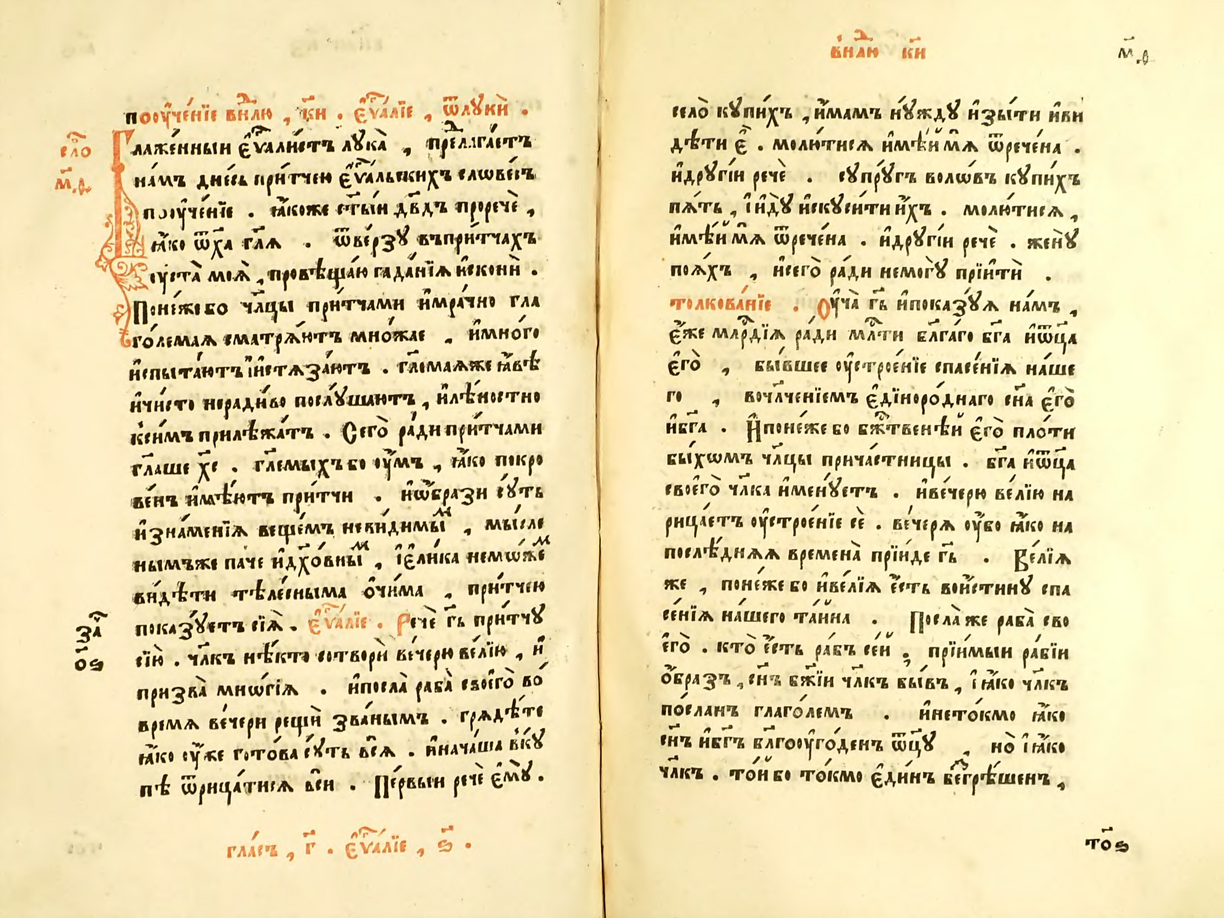 пооуче́нїе внⷣлю , к҃и . є҆ѵⷢ҇алїе , ѿлꙋкѝ .
сло́
м҃в
Блаже́нныи є҆ѵⷢ҇алистъ лꙋка̀ , предлага́етъ
на́мъ дне́сь при́тчею є҆ѵⷢ҇альскихъ слове́съ
поꙋче́нїе . ꙗ҆́коже ст҃ы́и дв҃дъ проречѐ ,
ꙗ҆́ко ѿх҃а гл҃ѧ . ѿве́рзꙋ въпри́тчахъ
оуста̀ моѧ̀ , провѣща́ю гада́нїѧ и҆сконѝ .
Поне́жебо чл҃цы при́тчами и҆мра́чно гла
го́лемаѧ сматрѧ́ютъ мно́жае , и҆мно́го
и҆спыта́ютъ и҆и҆стѧза́ютъ . гл҃емаѧже ꙗ҆́вѣ
и҆чи́сто неради́во послꙋ́шаютъ , и҆лѣ́ностно
ксимъ прилѣжа́тъ . Сего̀ ра́ди при́тчами
гл҃аше х҃с . гл҃емыхъ бо оу҆́мъ , ꙗ҆́ко покро
ве́нъ и҆мѣ́ютъ при́тчи . и҆ѡ҆́брази сꙋ́ть
и҆зна́менїѧ веще́мъ неви́димыⷨ , мы́сле
нымъже па́че и҆дх҃о́вныⷨ , і҆є҆ли́ка немо́жеⷨ
ви́дѣти тѣле́сныма о҆чи́ма , при́тчею
показꙋ́етъ сїѧ̀ . є҆ѵⷢ҇алїе . Речѐ гь҃ при́тчꙋ
за҃
ѻ҃ѕ
сїю̀ . чл҃къ нѣ́кто сотворѝ вече́рю ве́лїю , и҆
призва̀ мно́гїѧ . и҆посла̀ раба̀ своего̀ во
вре́мѧ вече́ри рещѝ зва́нымъ . грѧдѣ́те
ꙗ҆́ко оу҆же гото́ва сꙋ́ть всѧ̀ . и҆нача́ша вкꙋ́
пѣ ѿрица́тисѧ всѝ . Пе́рвыи речѐ є҆мꙋ̀ .
гла́съ , г҃ . є҆ѵⷢ҇алїе , ѕ҃ .
внⷣлю к҃и
м҃в
село̀ кꙋпи́хъ , и҆́мамъ нꙋ́ждꙋ и҆зы́ти и҆ви
дѣ́ти є҆̀ . молю́тисѧ и҆мѣ́и мѧ̀ ѿрече́на .
и҆дрꙋгі́и речѐ . сꙋпрꙋ́гъ воло́въ кꙋпи́хъ
пѧ́ть , і҆и҆дꙋ̀ и҆скꙋси́ти и҆́хъ . молю́тисѧ ,
и҆мѣ́и мѧ̀ ѿрече́на . и҆дрꙋгі́и речѐ . женꙋ̀
поѧ́хъ , и҆сего̀ ра́ди немогꙋ̀ прїитѝ .
толкова́нїе . Оу҆ча̀ гь҃ и҆показꙋ́ѧ на́мъ ,
є҆́же млⷭ҇рдїѧ ра́ди млⷭ҇ти бл҃га́го бг҃а и҆ѿц҃а̀
є҆го̀ , бы́вшее оу҆строе́нїе спасе́нїѧ на́ше
го , вочл҃че́нїемъ є҆диноро́днаго сн҃а є҆го̀
и҆бг҃а . И҆поне́же бо бжⷭ҇твенѣи є҆го̀ пло́ти
бы́хомъ чл҃цы прича́стницы . бг҃а и҆ѿц҃а̀
своего̀ чл҃ка и҆менꙋ́етъ . и҆вече́рю ве́лїю на
рица́етъ оу҆строе́нїе сѐ . вече́рѧ оу҆́бо ꙗ҆́ко на
послѣ́днѧѧ времена̀ прїи́де гь҃ . Ве́лїѧ
же , поне́же бо и҆ве́лїѧ є҆́сть вои́стинꙋ спа
се́нїѧ на́шего та́ина . Посла́ же раба̀ сво
є҆го̀ . кто̀ є҆́сть ра́бъ се́й , прїи́мыи ра́бїи
о҆́бразъ , сн҃ъ бж҃їи чл҃къ бы́въ , і҆ꙗ҆́ко чл҃къ
по́сланъ глаго́лемъ . и҆нето́кмо ꙗ҆́ко
сн҃ъ и҆бг҃ъ бл҃гооуго́денъ ѿц҃ꙋ̀ , но̀ і҆ꙗ҆́ко
чл҃къ . то́й бо то́кмо є҆ди́нъ безгрѣ́шенъ ,
то́ѕ